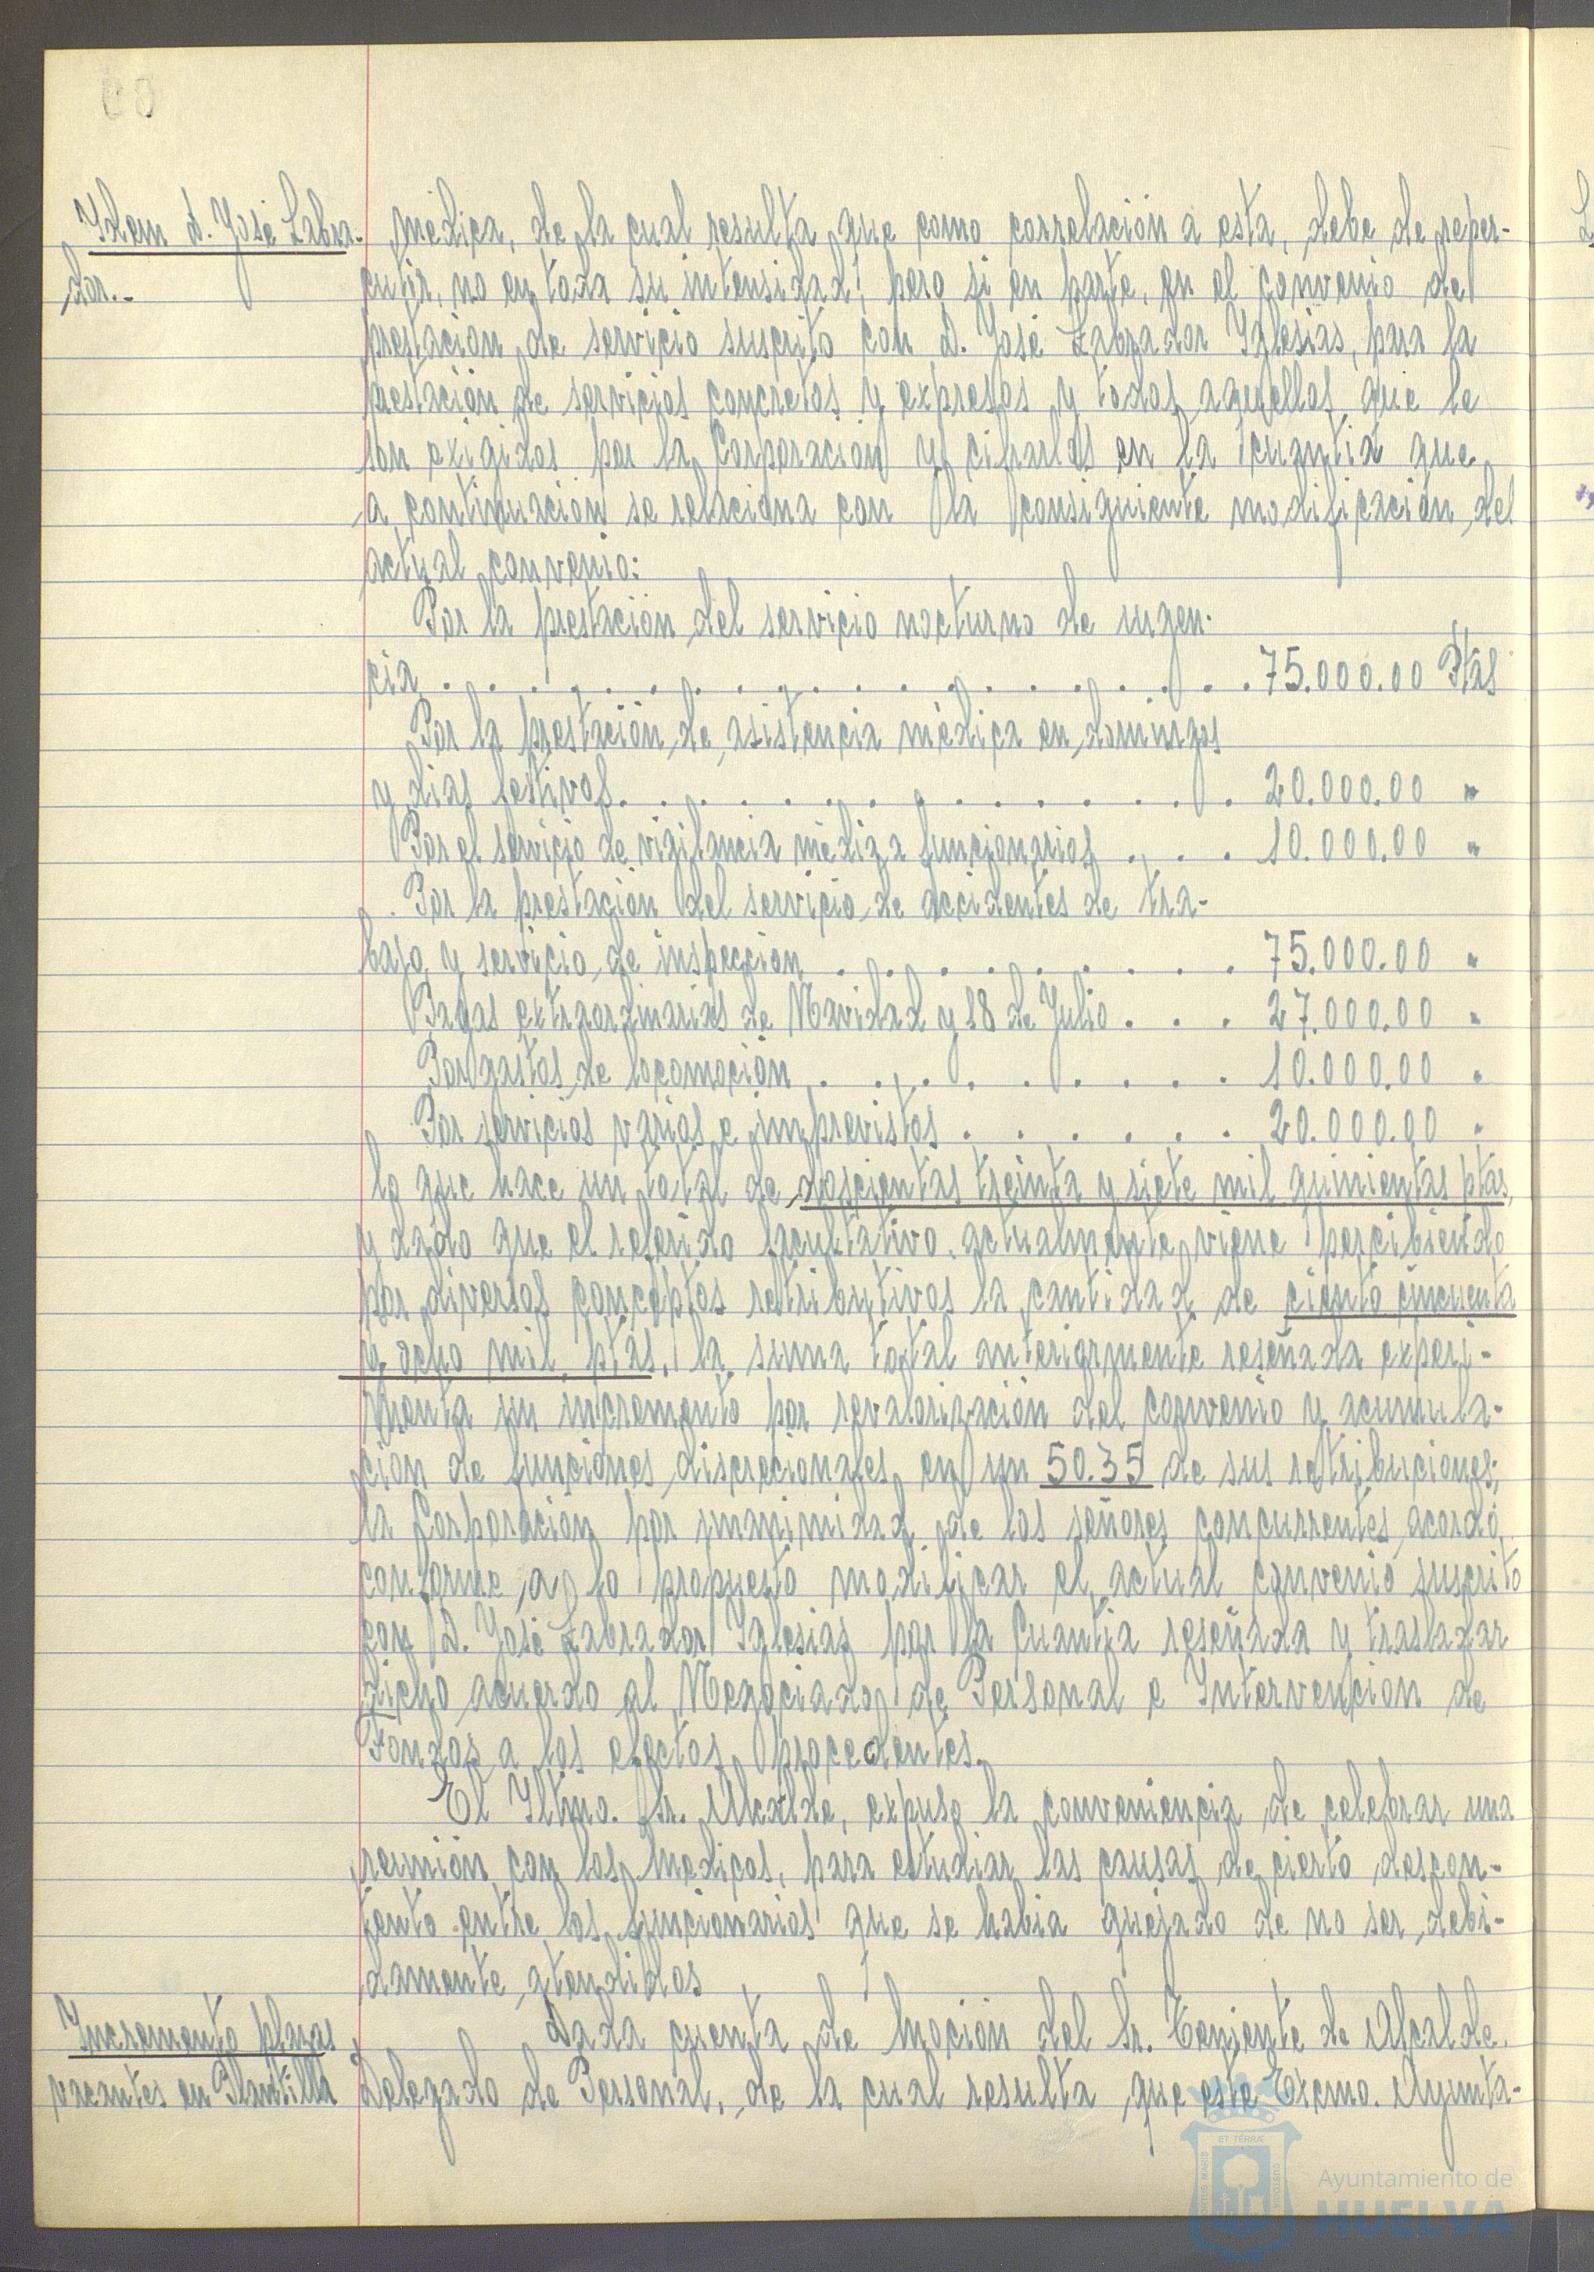 Idem d. José Labra-
dor.-
médica, de la cual resulta que como correlación a esta, debe de reper-
cutir, no en toda su intensidad, pero si en parte, en el convenio de
prestacion de servicio suscrito con d. José Labrador Iglesias, para la
prestación de servicios concretos y expresos y todos aquellos que le
son exigidos por la Corporación y cifrarlos en la cuantia que
a continuación se relaciona con la consiguiente modificación del
actual convenio:
Por la prestación del servicio nocturno de urgen-
cia . . . . . . . . . . . . . . . . . . . . 75.000.00 Ptas
Por la prestación de asistencia médica en domingos
y dias festivos. . . . . . . . . . . . . . . 20.000.00 "
Por el servicio de vigilancia médica a funcionarios . . . 10.000.00 "
Por la prestación del servicio de accidentes de tra-
bajo y servicio de inspeccion . . . . . . . . . . 75.000.00 "
Pagas extraordinarias de Navidad y 18 de Julio . . . 27.000.00 "
Por gastos de locomoción . . . . . . . . . . 10.000.00 "
Por servicios varios e imprevistos . . . . . . . 20.000.00 "
lo que hace un total de doscientas treinta y siete mil quinientas ptas,
y dado que el referido facultativo, actualmente viene percibiendo
por diversos conceptos retributivos la cantidad de ciento cincuenta
y ocho mil ptas, la suma total anteriormente reseñada experi-
menta un incremento por revalorización del convenio y acumula-
ción de funciones discrecionales, en un 50.35 de sus retribuciones;
la Corporación por unanimidad de los señores concurrentes, acordó,
conforme a lo propuesto modificar el actual convenio suscrito
con D. José Labrador Iglesias por la Cuantia reseñada y trasladar
dicho acuerdo al Negociado de Personal e Intervencion de
Fondos a los efectos procedentes.
El Iltmo. Sr. Alcalde, expuso la conveniencia de celebrar una
reunión con los médicos, para estudiar las causas de cierto descon-
tento entre los funcionarios que se habia quejado de no ser debi-
damente atendidos
Incremento plazas
vacantes en Plantilla
Dada cuenta de Moción del Sr. Teniente de Alcalde.
Delegado de Personal, de la cual resulta que este Excmo. Ayunta-
Ayuntamiento de
HUELVA